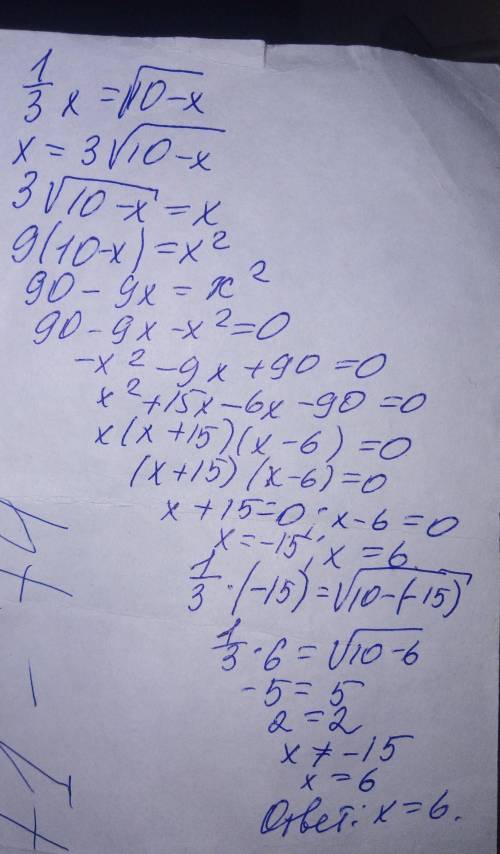 1/3 x = √10-x
x = 3√10-x
3√10-x = x
9(10-x) = x²
90 - 9x = x²
90 - 9x - x² = 0
-x² - 9x + 90 = 0
x² + 15x - 6x - 90 = 0
x(x + 15)(x - 6) = 0
(x + 15)(x - 6) = 0
x + 15 = 0; x - 6 = 0
x = -15; x = 6
1/3 · (-15) = √10-(-15)
1/3 · 6 = √10-6
-5 = 5
2 = 2
x ≠ -15
x = 6
Ответ: x = 6.